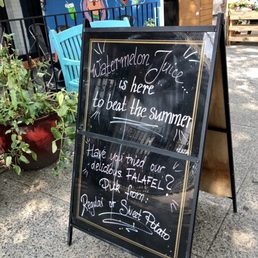 Watermelon Juice...
is here
to beat the summer
Have you tried our
delicious FALAFEL?
Pick from:
Regular or Sweet Potato